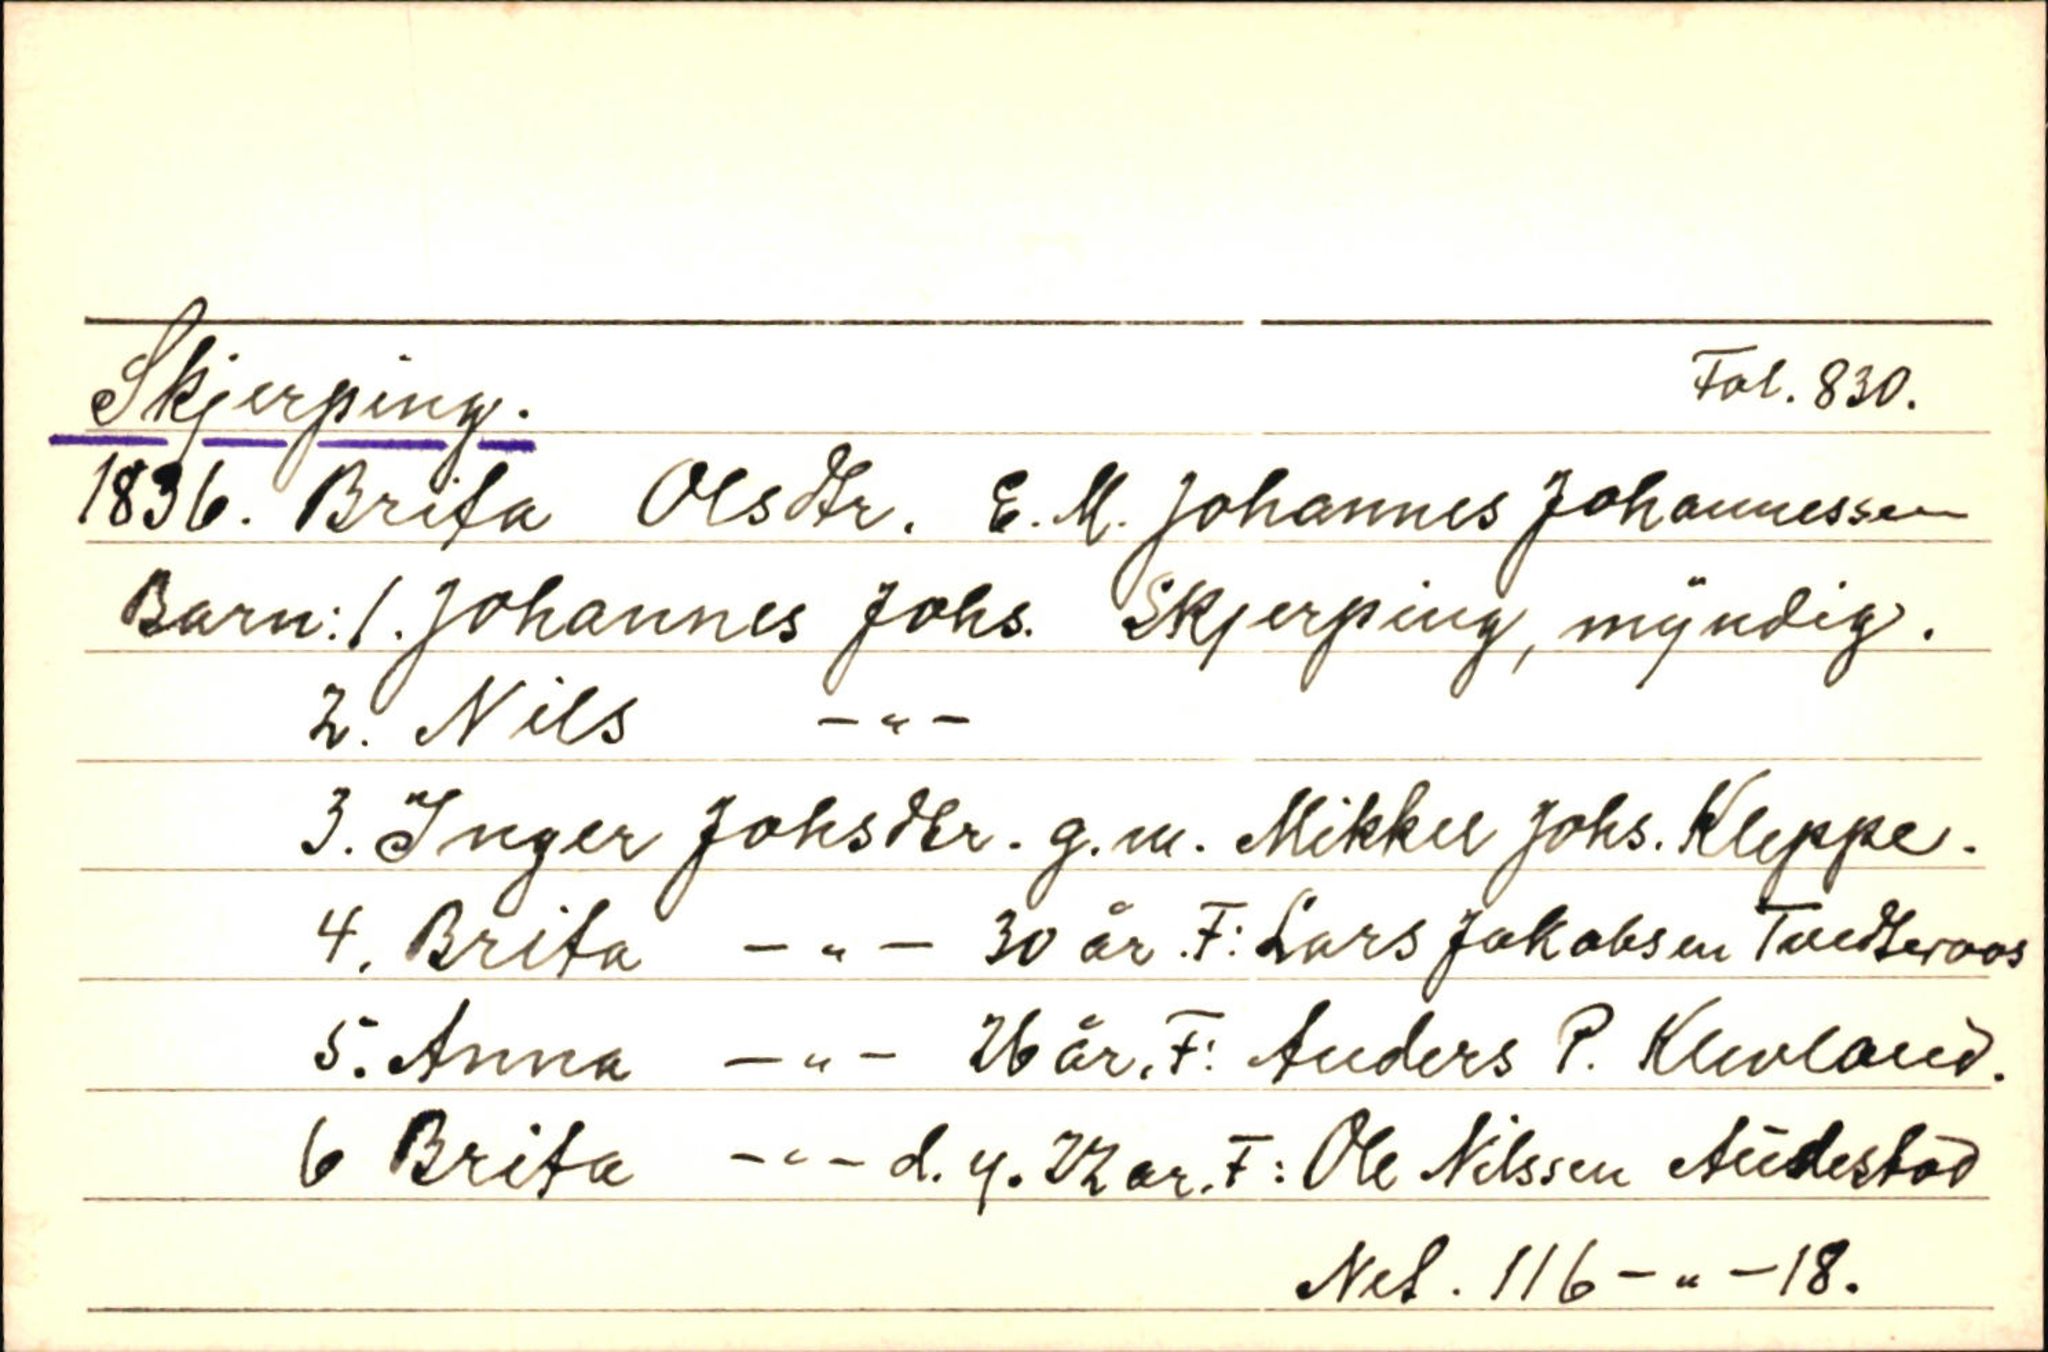 Skjerping.
Fol. 830.
1836. Brita Olsdtr. E. M. Johannes Johannessen
Barn: 1. Johannes Johs. Skjerping, mÿndig.
2. Nils -"-
3. Inger Johsdtr. g. m. Mikkel Johs. Kleppe.
4. Brita -"- 30 år. F: Lars Jakobsen
5. Anna -"- 26 år. F: Anders P. Klevland.
6 Brita -"- d. y. 22 ar. F: Ole Nilssen Aŭdestad
Net. 116-"-18.